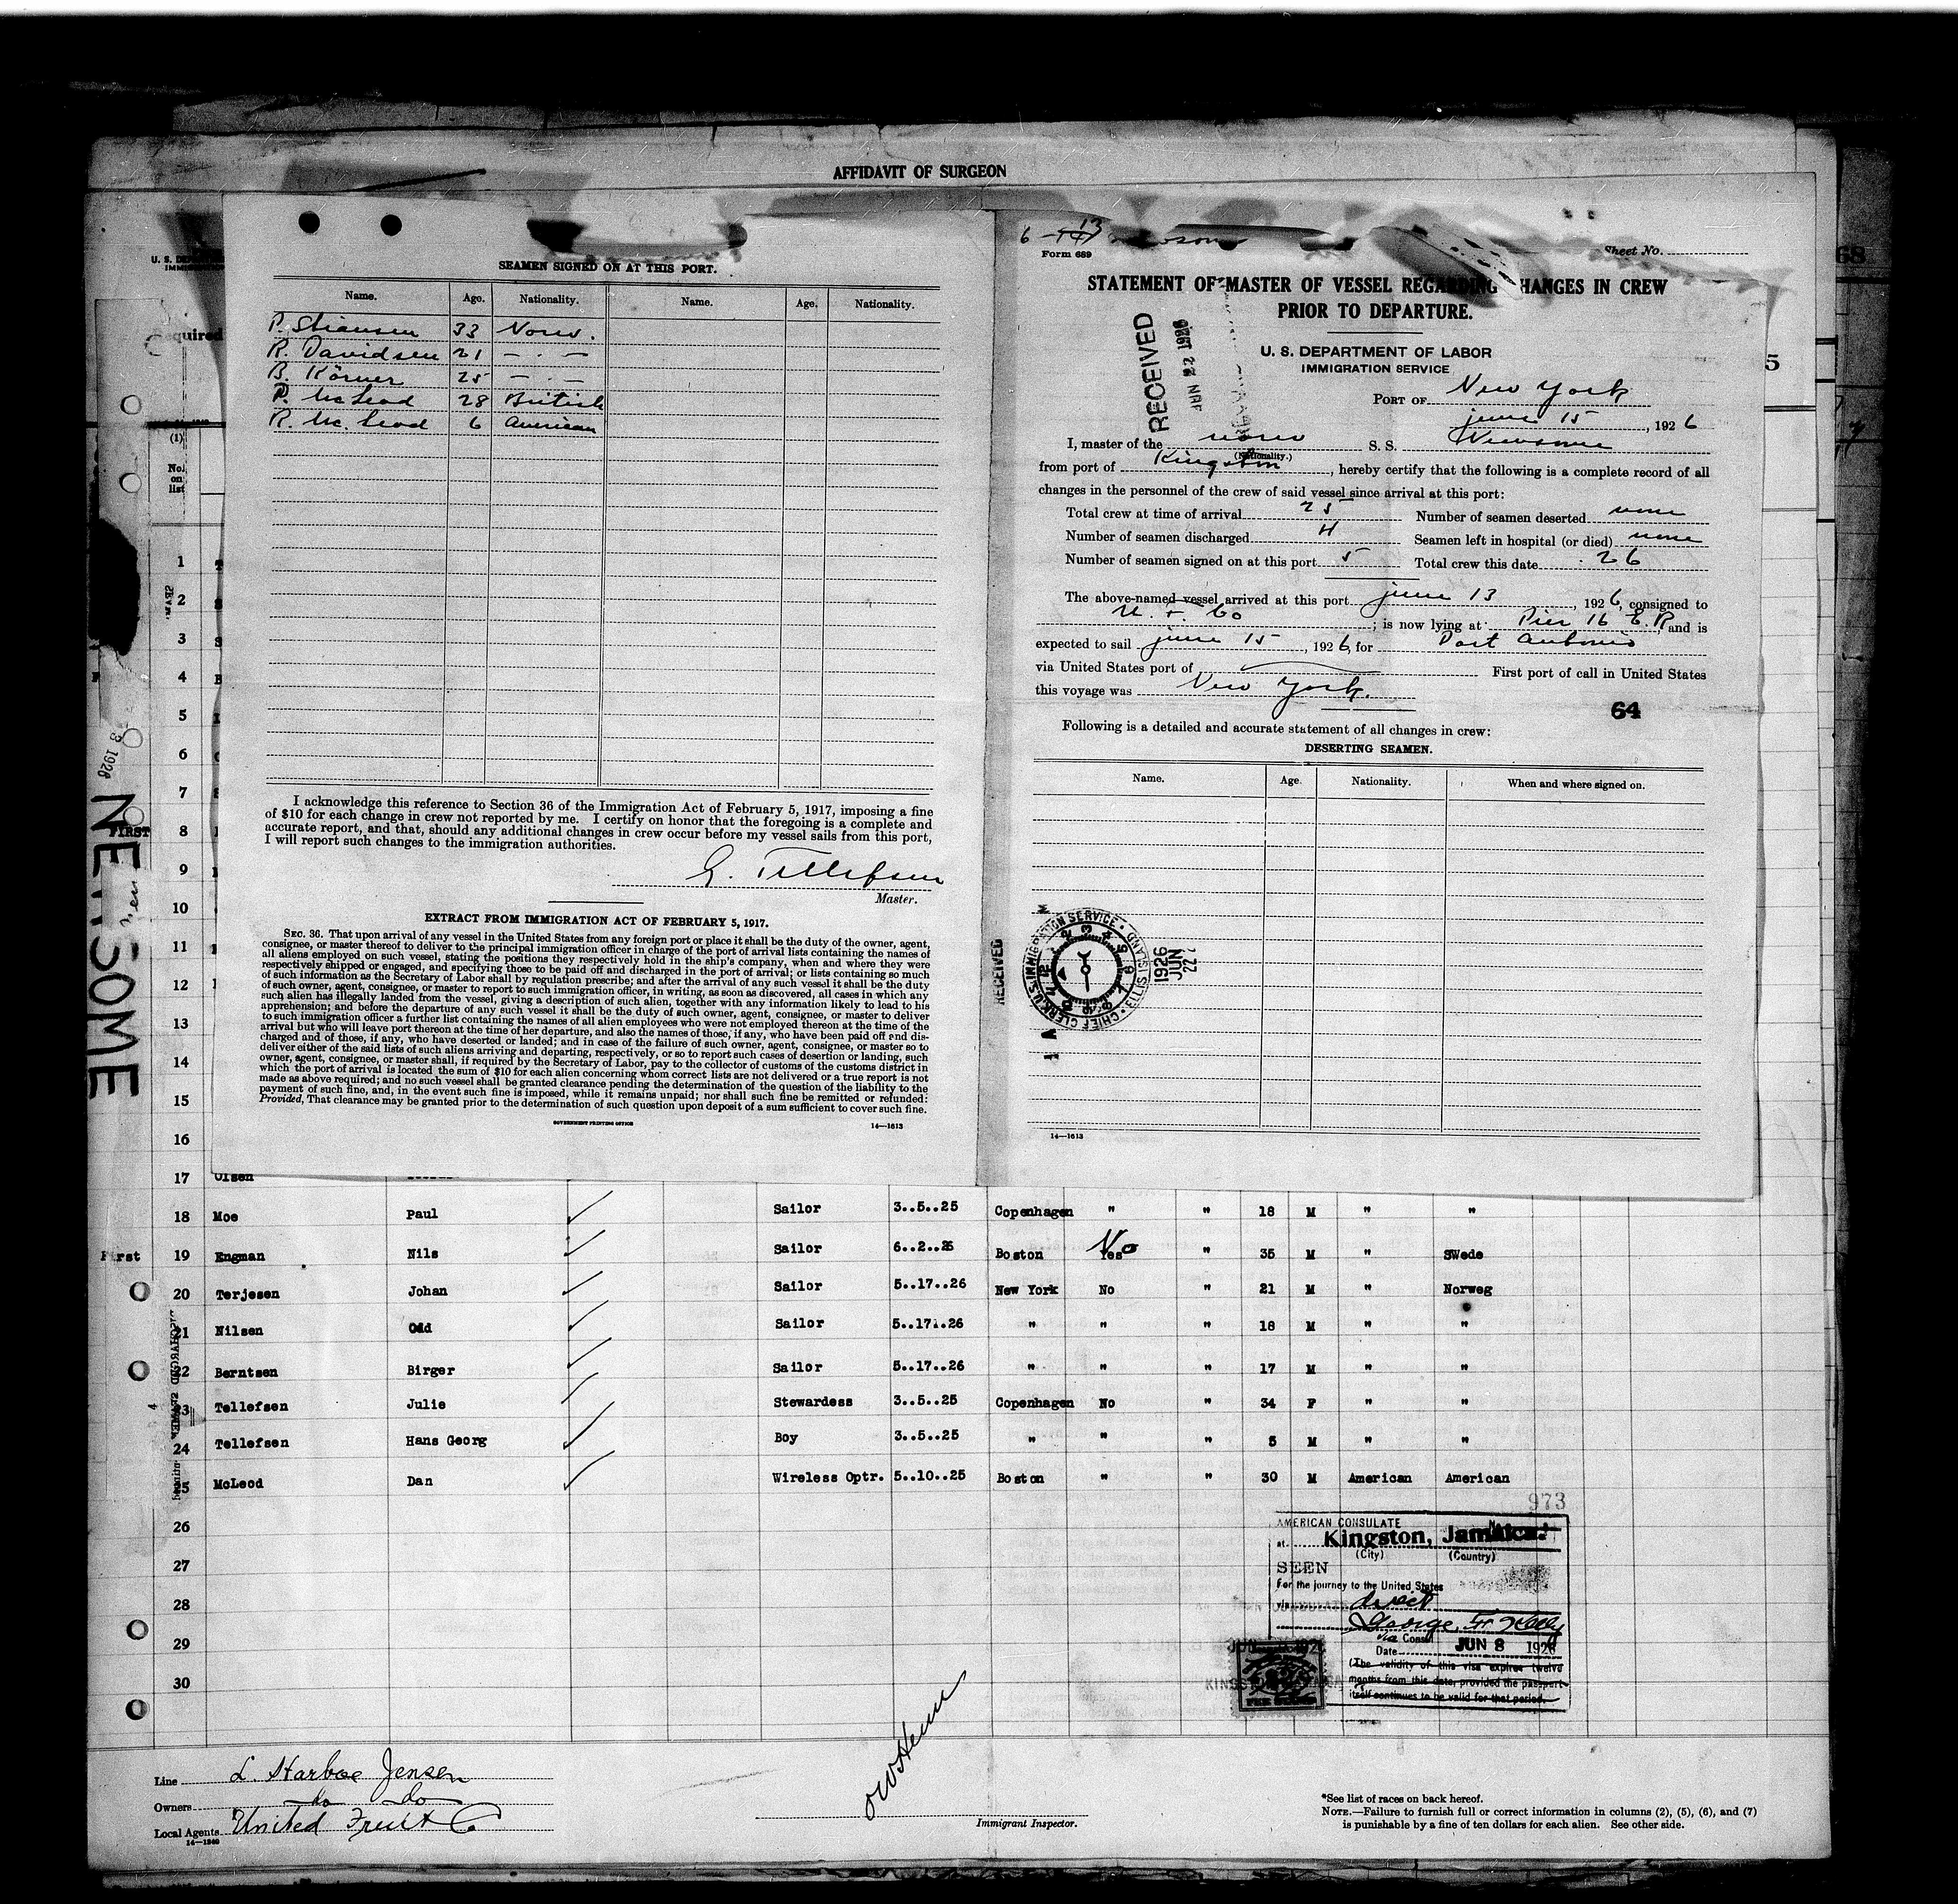 AFFIDAVIT OF SURGEON
SEAMEN SIGNED ON AT THIS PORT.
Name. Age. Nationality. Name. Age. Nationality.
P. Stiansen 33 Norw.
R. Davidsen 21 — . —
B. Körner 25 — . —
P. McLeod 28 British
R. Mc. Leod 6 American
I acknowledge this reference to Section 36 of the Immigration Act of February 5, 1917, imposing a fine
of $10 for each change in crew not reported by me. I certify on honor that the foregoing is a complete and
accurate report, and that, should any additional changes in crew occur before my vessel sails from this port,
I will report such changes to the immigration authorities.
G. Tellefsen
Master.
EXTRACT FROM IMMIGRATION ACT OF FEBRUARY 5, 1917.
SEC. 36. That upon arrival of any vessel in the United States from any foreign port or place it shall be the duty of the owner, agent,
consignee, or master thereof to deliver to the principal immigration officer in charge of the port of arrival lists containing the names of
all aliens employed on such vessel, stating the positions they respectively hold in the ship's company, when and where they were
respectively shipped or engaged, and specifying those to be paid off and discharged in the port of arrival; or lists containing so much
of such information as the Secretary of Labor shall by regulation prescribe; and after the arrival of any such vessel it shall be the duty
of such owner, agent, consignee, or master to report to such immigration officer, in writing, as soon as discovered, all cases in which any
such alien has illegally landed from the vessel, giving a description of such alien, together with any information likely to lead to his
apprehension; and before the departure of any such vessel it shall be the duty of such owner, agent, consignee, or master to deliver
to such immigration officer a further list containing the names of all alien employees who were not employed thereon at the time of the
arrival but who will leave port thereon at the time of her departure, and also the names of those, if any, who have been paid off and dis-
charged and of those, if any, who have deserted or landed; and in case of the failure of such owner, agent, consignee, or master so to
deliver either of the said lists of such aliens arriving and departing, respectively, or so to report such cases of desertion or landing, such
owner, agent, consignee, or master shall, if required by the Secretary of Labor, pay to the collector of customs of the customs district in
which the port of arrival is located the sum of $10 for each alien concerning whom correct lists are not delivered or a true report is not
made as above required; and no such vessel shall be granted clearance pending the determination of the question of the liability to the
payment of such fine, and, in the event such fine is imposed, while it remains unpaid; nor shall such fine be remitted or refunded:
Provided, That clearance may be granted prior to the determination of such question upon deposit of a sum sufficient to cover such fine.
GOVERNMENT PRINTING OFFICE
14—1613
Form 689
Sheet No.
STATEMENT OF MASTER OF VESSEL REGARDING CHANGES IN CREW
PRIOR TO DEPARTURE.
U. S. DEPARTMENT OF LABOR
IMMIGRATION SERVICE
RECEIVED
PORT OF New York
june 15, 1926
I, master of the norw S. S. Newsome
(Nationality.)
from port of Kingston, hereby certify that the following is a complete record of all
changes in the personnel of the crew of said vessel since arrival at this port:
Total crew at time of arrival 25 Number of seamen deserted none
Number of seamen discharged 4 Seamen left in hospital (or died) none
Number of seamen signed on at this port 5 Total crew this date 26
The above-named vessel arrived at this port june 13, 1926, consigned to
U. F. Co; is now lying at Pier 16 E.R and is
expected to sail june 15, 1926, for Port Antonio
via United States port of — First port of call in United States
this voyage was New York.
64
Following is a detailed and accurate statement of all changes in crew:
DESERTING SEAMEN.
Name. Age. Nationality. When and where signed on.
RECEIVED
U.S. IMMIGRATION SERVICE
CHIEF CLERK
ELLIS ISLAND
1926 JUN 22
14—1613
NEWSOME
(1)
No. on list
1
2
3
4
5
6
7
FIRST 8
9
10
11
12
13
14
15
16
17 Olsen
18 Moe Paul Sailor 3..5..25 Copenhagen " " 18 M " "
First 19 Engman Nils Sailor 6..2..26 Boston Yes No " 35 M " SWede
20 Terjesen Johan Sailor 5..17..26 New York No " 21 M " Norweg
21 Nilsen Odd Sailor 5..17..26 " " " 18 M " "
22 Berntsen Birger Sailor 5..17..26 " " " 17 M " "
23 Tellefsen Julie Stewardess 3..5..25 Copenhagen No " 34 F " "
24 Tellefsen Hans Georg Boy 3..5..25 " " " 5 M " "
25 McLeod Dan Wireless Optr. 5..10..25 Boston " " 30 M American American
26
27
28
29
30
973
AMERICAN CONSULATE
at Kingston, Jamaica.
(City) (Country)
SEEN
For the journey to the United States
via direct
George
Vice Consul
Date JUN 8 1926
(The validity of this visa expires twelve
months from this date, provided the passport
itself continues to be valid for that period.
Line L. Harboe Jensen
Owners do do
Local Agents United Fruit Co
14—1240
Immigrant Inspector.
*See list of races on back hereof.
NOTE.—Failure to furnish full or correct information in columns (2), (5), (6), and (7)
is punishable by a fine of ten dollars for each alien. See other side.